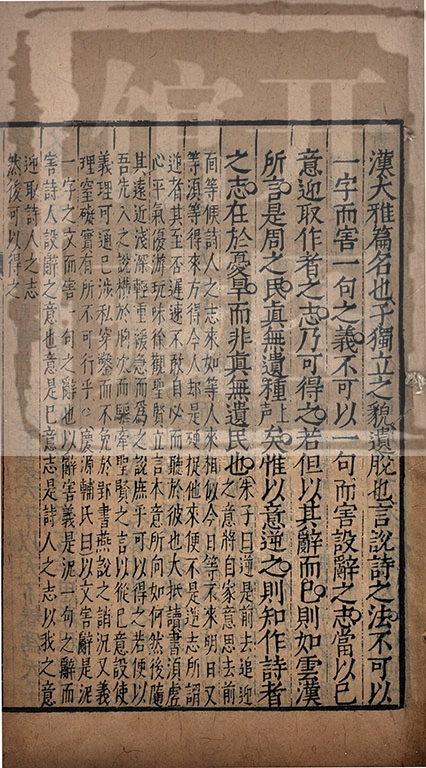 漢大雅篇名也孑獨立之貌遺脫也言說詩之法不可以
一字而害一句之義不可以一句而害設辭之志當以己
意迎取作者之志乃可得之若但以其辭而已則如雲漢
所言是周之民真無遺種上聲矣惟以意逆之則知作詩者
之志在於憂旱而非真無遺民也朱子曰逆是前去追迎
之意將自家意思去前
面等候詩人之志來如等人來相似今日等不來明日又
等須等得來方得今人却是硬捉他來便不是逆志所謂
迎者其至否遲速不敢自必而聽於彼也大抵讀書須虛
心平氣優游玩味徐觀聖賢立言本意所向如何然後隨
其遠近淺深輕重緩急而為之說庶乎可以得之若便以
吾先入之說橫於胸次而驅牽聖賢之言以從己意設使
義理可通已涉私穿鑿而不免於郢書燕說之誚況又義
理窒礙實有所不可行乎○慶源輔氏曰以文害辭是泥
一字之文而害一句之辭也以辭害義是泥一句之辭而
害詩人設辭之意也意是己意志是詩人之志以我之意
迎取詩人之志
然後可以得之